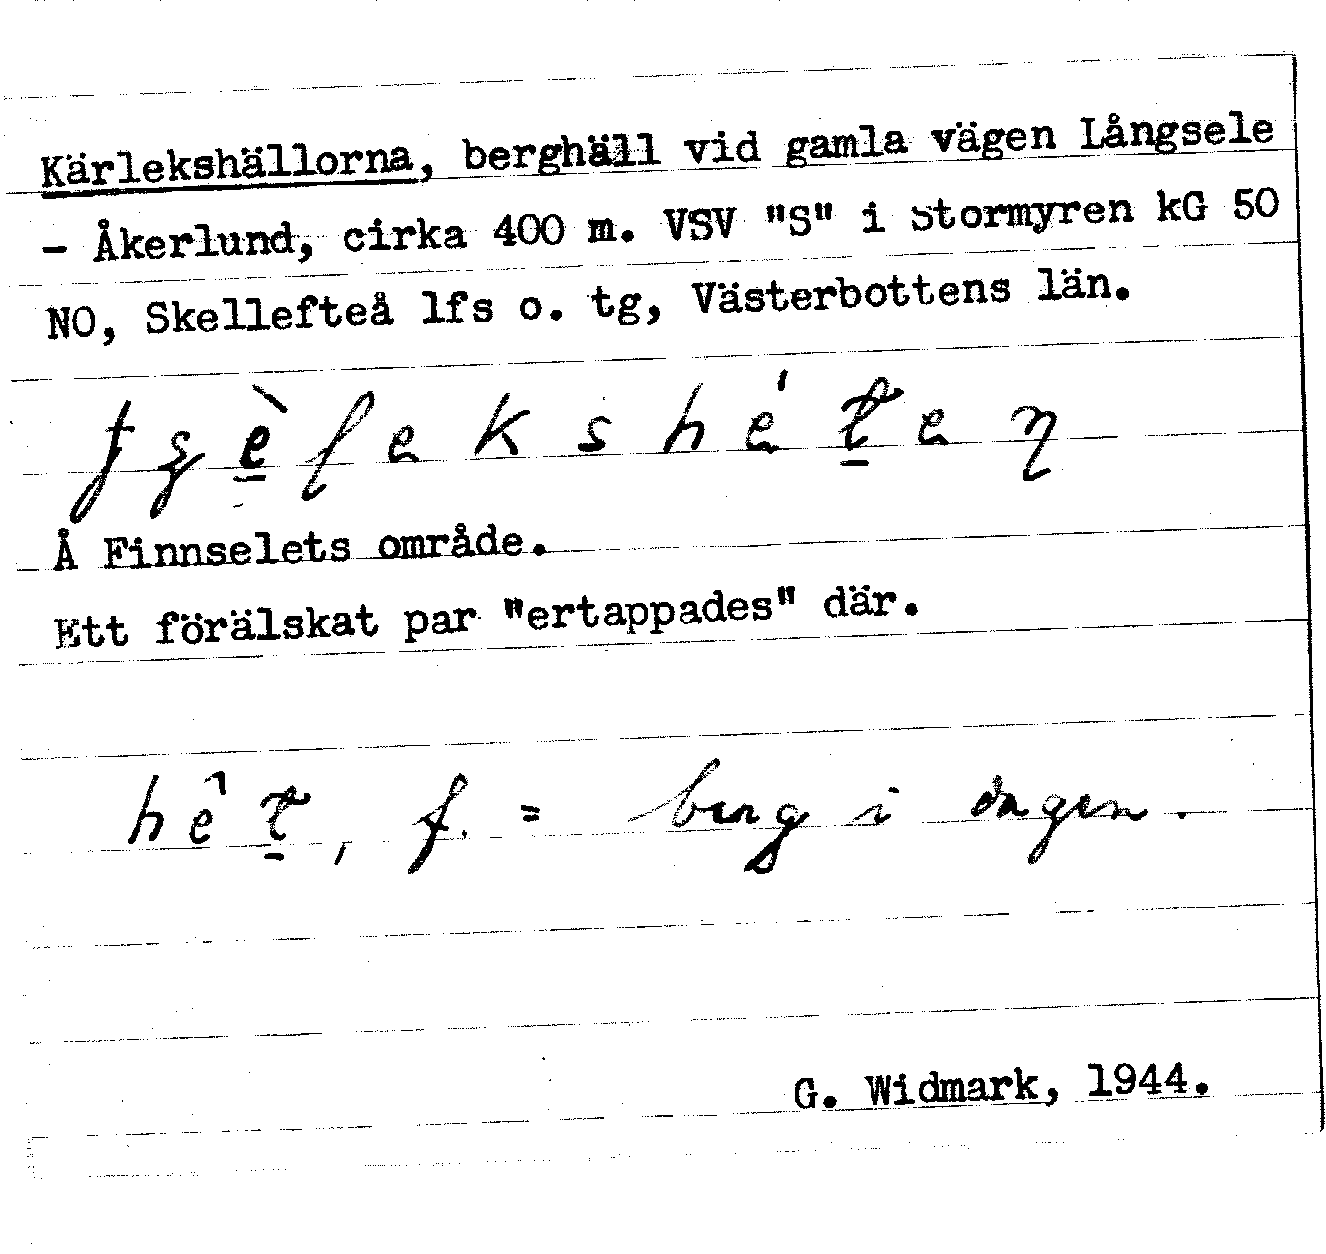 Kärlekshällorna, berghäll vid gamla vägen Långsele
- Åkerlund, cirka 400 m. VSV "S" i Stormyren kG 50
NO, Skellefteå lfs o. tg, Västerbottens län.
Å Finnselets område.
Ett förälskat par "ertappades" där.
f. = berg i dagen.
G. Widmark, 1944.